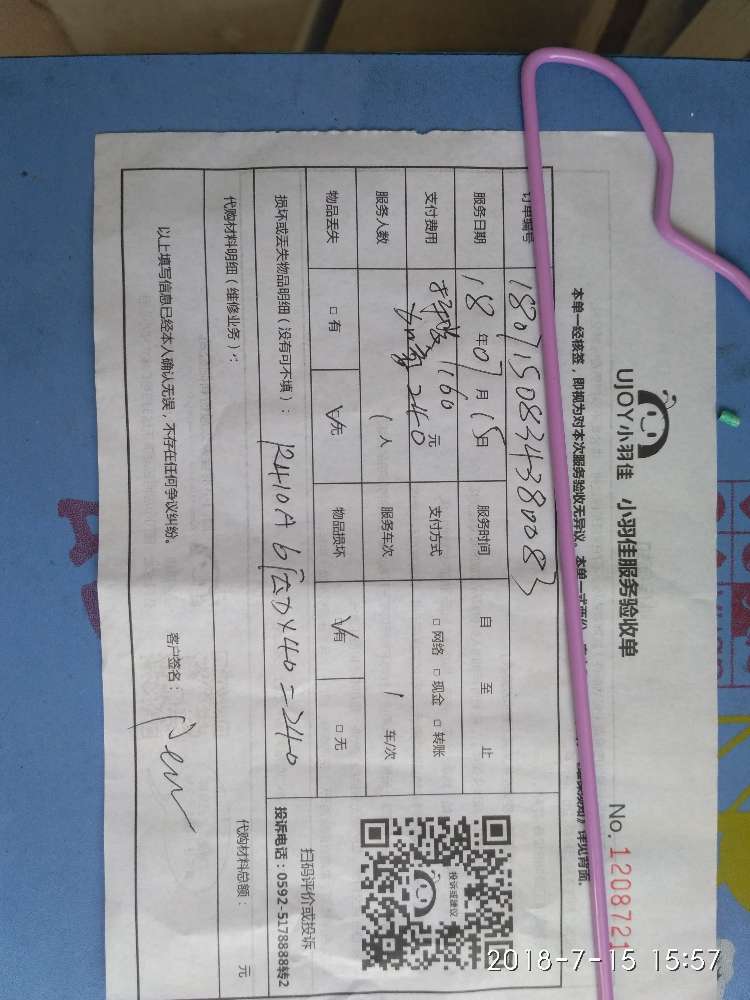 UJOY小羽佳 小羽佳服务验收单
No. 1208721
本单一经核签，即视为对本次服务验收无异议。本单一式两份，
详见背面.
订单编号 1807150834380083
服务日期 18年07月15日 服务时间 自 至 止
支付费用 160元 支付方式 □网络 □现金 □转账
240
服务人数 1人 服务车次 1车/次
物品丢失 □有 ☑无 物品损坏 ☑有 □无
投诉或建议
扫码评价或投诉
投诉电话：0592-5178888转2
损坏或丢失物品明细（没有可不填）： R410A 6 X40=240
代购材料明细（维修业务）： 代购材料总额： 元
以上填写信息已经本人确认无误，不存在任何争议纠纷。
客户签名：
2018-7-15 15:57